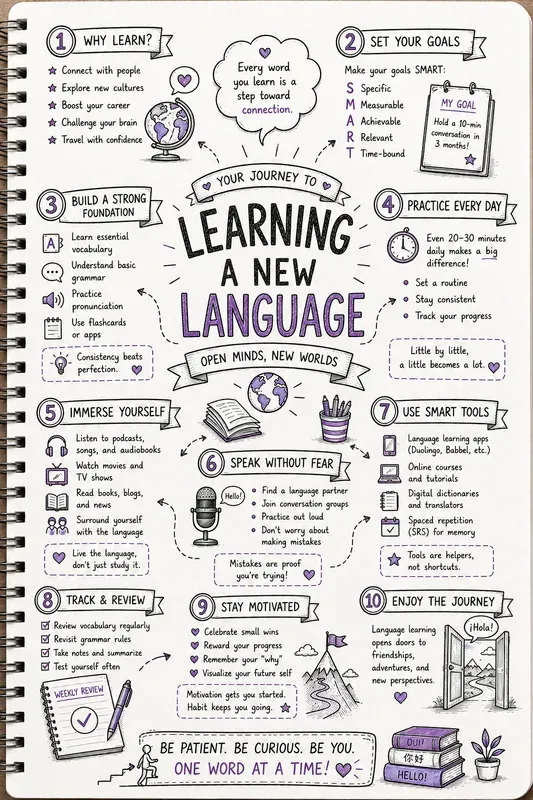 1 WHY LEARN?
★ Connect with people
★ Explore new cultures
★ Boost your career
★ Challenge your brain
★ Travel with confidence
Every word
you learn is a
step toward
connection.
2 SET YOUR GOALS
Make your goals SMART:
S Specific
M Measurable
A Achievable
R Relevant
T Time-bound
MY GOAL
Hold a 10-min
conversation in
3 months!
YOUR JOURNEY TO
LEARNING
A NEW
LANGUAGE
OPEN MINDS, NEW WORLDS
3 BUILD A STRONG
FOUNDATION
A
Learn essential
vocabulary
Understand basic
grammar
Practice
pronunciation
Use flashcards
or apps
Consistency beats
perfection.
4 PRACTICE EVERY DAY
Even 20-30 minutes
daily makes a big
difference!
• Set a routine
• Stay consistent
• Track your progress
Little by little,
a little becomes a lot.
5 IMMERSE YOURSELF
Listen to podcasts,
songs, and audiobooks
Watch movies and
TV shows
Read books, blogs,
and news
Surround yourself
with the language
Live the language,
don't just study it.
6 SPEAK WITHOUT FEAR
Hello!
• Find a language partner
• Join conversation groups
• Practice out loud
• Don't worry about
making mistakes
Mistakes are proof
you're trying!
7 USE SMART TOOLS
Language learning apps
(Duolingo, Babbel, etc.)
Online courses
and tutorials
Digital dictionaries
and translators
Spaced repetition
(SRS) for memory
Tools are helpers,
not shortcuts.
8 TRACK & REVIEW
Review vocabulary regularly
Revisit grammar rules
Take notes and summarize
Test yourself often
WEEKLY REVIEW
9 STAY MOTIVATED
Celebrate small wins
Reward your progress
Remember your "why"
Visualize your future self
Motivation gets you started.
Habit keeps you going.
10 ENJOY THE JOURNEY
Language learning
opens doors to
friendships,
adventures, and
new perspectives.
¡Hola!
BE PATIENT. BE CURIOUS. BE YOU.
ONE WORD AT A TIME!
OUI!
你好
HELLO!